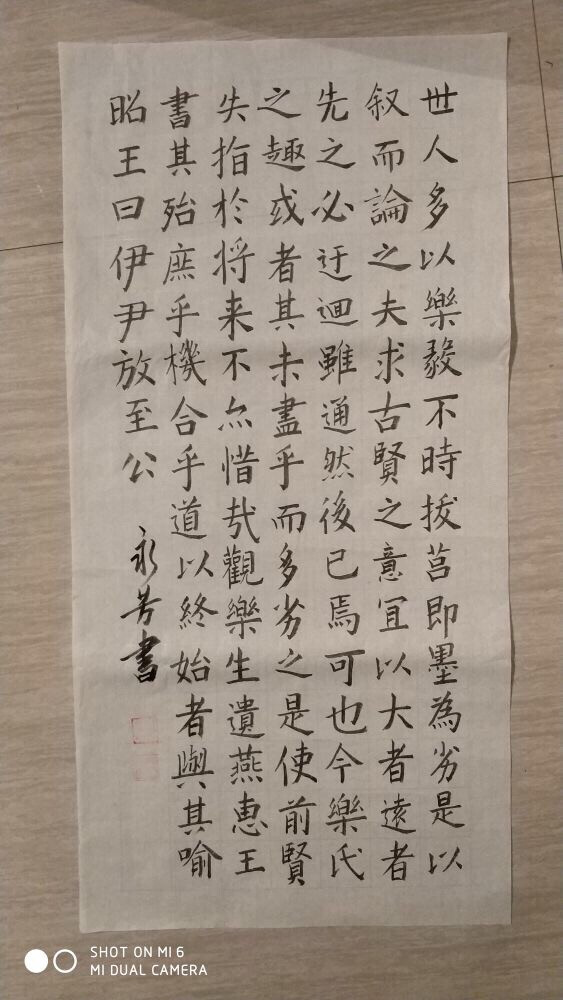 世人多以樂毅不時拔莒即墨為劣是以
叙而論之夫求古賢之意宜以大者遠者
先之必迂迴雖通然後已焉可也今樂氏
之趣或者其未盡乎而多劣之是使前賢
失指於将来不尓惜哉觀樂生遺燕惠王
書其殆庶乎機合乎道以終始者與其喻
昭王曰伊尹放至公
永芳書
SHOT ON MI 6
MI DUAL CAMERA